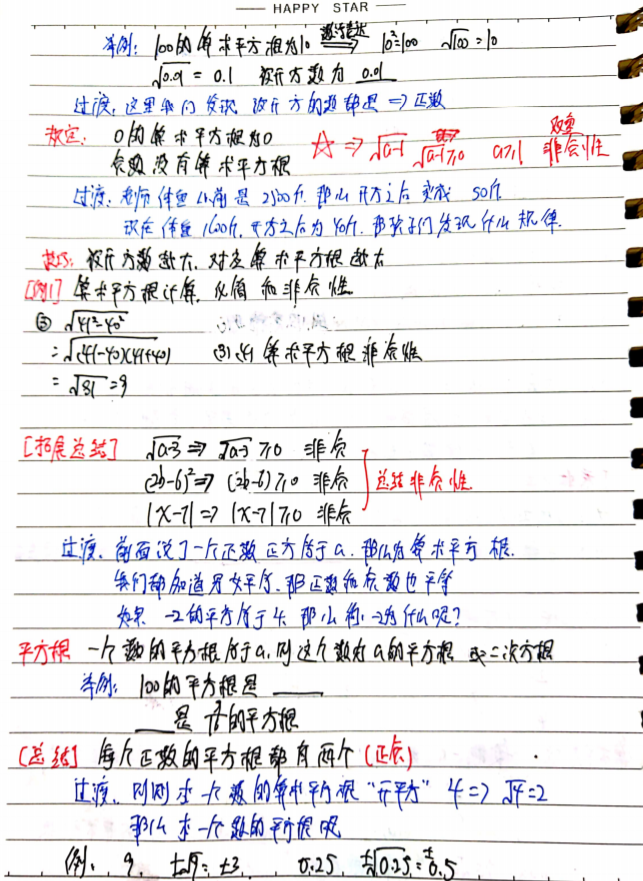 HAPPY STAR
举例: 100的算术平方根为10 数学表达 ⟹ 10²=100 √100=10
√0.01 = 0.1 被开方数为 0.01
过渡: 这里我们发现 被开方的数都是 ⇒ 正数
规定: 0的算术平方根为0
负数没有算术平方根
☆ ⇒ √a-1 √a-1≥0 a≥1 双重非负性
过渡: 老师体重以前是2500斤. 那么开方之后变成 50斤.
现在体重1600斤, 开方之后为40斤. 那孩子们发现什么规律.
技巧: 被开方数越大. 对应算术平方根越大
[例1] 算术平方根计算, 化简 和 非负性
② √41²-40²
= √(41-40)(41+40) (3)(4) 算术平方根非负性
= √81 = 9
[拓展总结] √a-3 ⇒ √a-3 ≥0 非负
(2b-6)² ⇒ (2b-6)²≥0 非负
|x-7| ⇒ |x-7|≥0 非负
总结非负性
过渡: 前面说了一个正数 正方等于a. 那么为算术平方根.
我们都知道男女平等. 那正数和负数也平等
如果 -2的平方等于4. 那么称-2为什么呢?
平方根 一个数的平方根等于a, 则这个数为a的平方根 或二次方根
举例: 100的平方根是 ____
____是 的平方根
[总结] 每个正数的平方根都有两个 (正负)
过渡: 刚刚求一个数的算术平方根 "开平方" 4 ⇒ √4=2
那么求一个数的平方根呢
例: 9. ±√9= ±3. 0.25. ±√0.25=±0.5